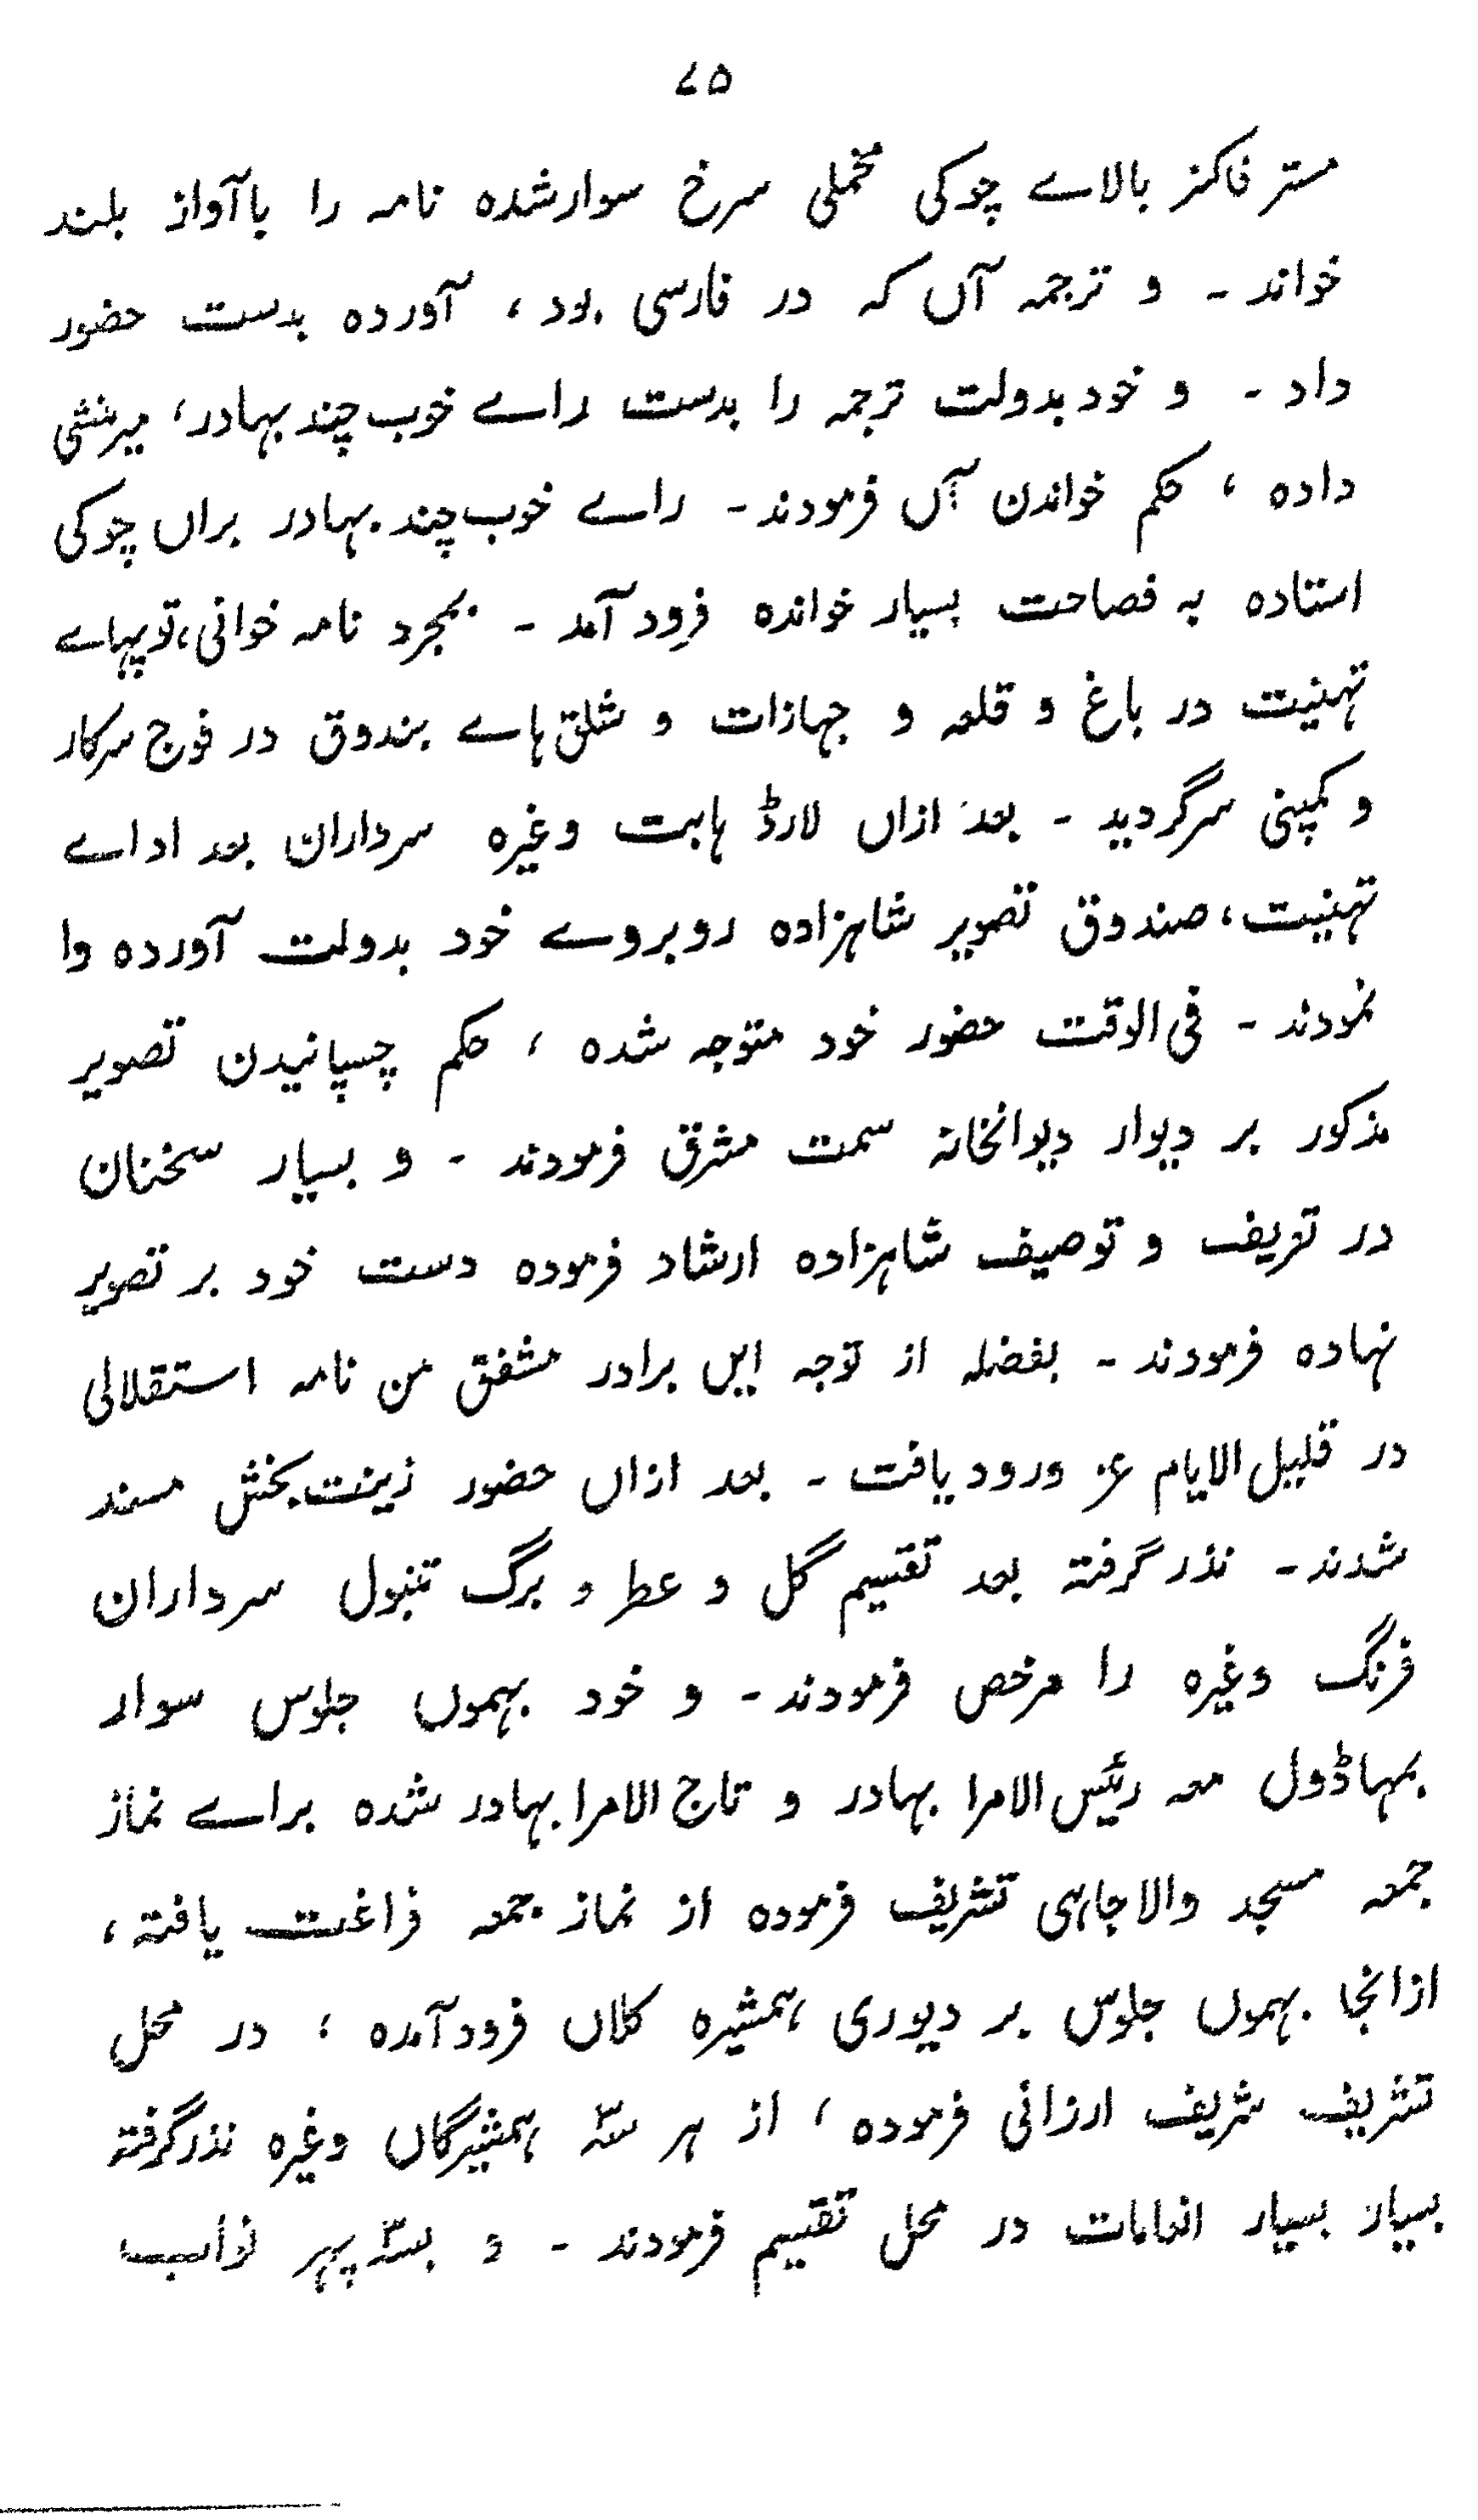 ۷۵
مستر فاکنر بالاے چوکی مخملی سرخ سوار شده نامه را باآواز بلند
خواند ۔ و ترجمه آں که در فارسی بود ، آورده بدست حضور
داد ۔ و خود بدولت ترجمه را بدست راے خوب چند بہادر ، میرمنشی
داده ، حکم خواندن آں فرمودند ۔ راے خوب چند بہادر براں چوکی
استاده به فصاحت بسیار خوانده فرود آمد ۔ بمجرد نامه خوانی ، توپہاے
تہنیت در باغ و قلعه و جہازات و شلق ہاے بندوق در فوج سرکار
و کمپنی سرگردید ۔ بعد ازاں لارڈ ہابت وغیره سرداران بعد اداے
تہنیت ، صندوق تصویر شاہزاده روبروے خود بدولت آورده وا
نمودند ۔ فی الوقت حضور خود متوجه شده ، حکم چسپانیدن تصویر
مذکور بر دیوار دیوانخانہ سمت مشرق فرمودند ۔ و بسیار سخنان
در تعریف و توصیف شاہزاده ارشاد فرموده دست خود بر تصویر
نہاده فرمودند ۔ بفضله از توجه ایں برادر مشفق من نامه استقلالی
در قلیل الایام عز ورود یافت ۔ بعد ازاں حضور زینت بخش مسند
شدند ۔ نذر گرفتہ بعد تقسیم گل و عطر و برگ تنبول سرداران
فرنگ وغیره را مرخص فرمودند ۔ و خود بہموں جلوس سوار
بمہاڈول معه رئیس الامرا بہادر و تاج الامرا بہادر شده براے نماز
جمعه مسجد والاجاہی تشریف فرموده از نماز جمعه فراغت یافتہ ،
ازانجا بہموں جلوس بر دیوری ہمشیره کلاں فرود آمده ، در محل
تشریف شریف ارزانی فرموده ، از ہر سہ ہمشیرگاں وغیره نذر گرفتہ
بسیار بسیار انعامات در محل تقسیم فرمودند ۔ و بسہ پہر نواب